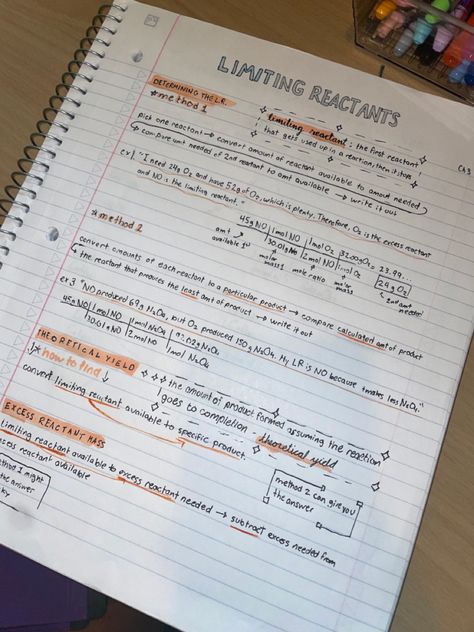 LIMITING REACTANTS
Ch 3
DETERMINING THE L.R.
*method 1
limiting reactant: the first reactant
that gets used up in a reaction, then it stops
pick one reactant → convert amount of reactant available to amount needed
compare amt needed of 2nd reactant to amt available → write it out
ex) "I need 24g O₂ and have 52g of O₂, which is plenty. Therefore, O₂ is the excess reactant
and NO is the limiting reactant."
45g NO | 1mol NO | 1mol O₂ | 32.00g O₂ = 23.99...
30.01g NO | 2mol NO | 1mol O₂
24g O₂
amt available 1st
molar mass 1
mole ratio
molar mass
2nd amt needed
*method 2
convert amounts of each reactant to a particular product → compare calculated amt of product
the reactant that produces the least amt of product → write it out
"NO produced 69g N₂O₄, but O₂ produced 150g N₂O₄. My LR is NO because it makes less N₂O₄."
45g NO | 1mol NO | 1mol N₂O₄ | 92.02g N₂O₄
30.01g NO | 2mol NO | 1mol N₂O₄
THEORETICAL YIELD
the amount of product formed assuming the reaction
goes to completion
theoretical yield
*how to find ↓
convert limiting reactant available to specific product
method 2 can give you
the answer
EXCESS REACTANT MASS
limiting reactant available to excess reactant needed → subtract excess needed from
excess reactant available
method 1 might
the answer